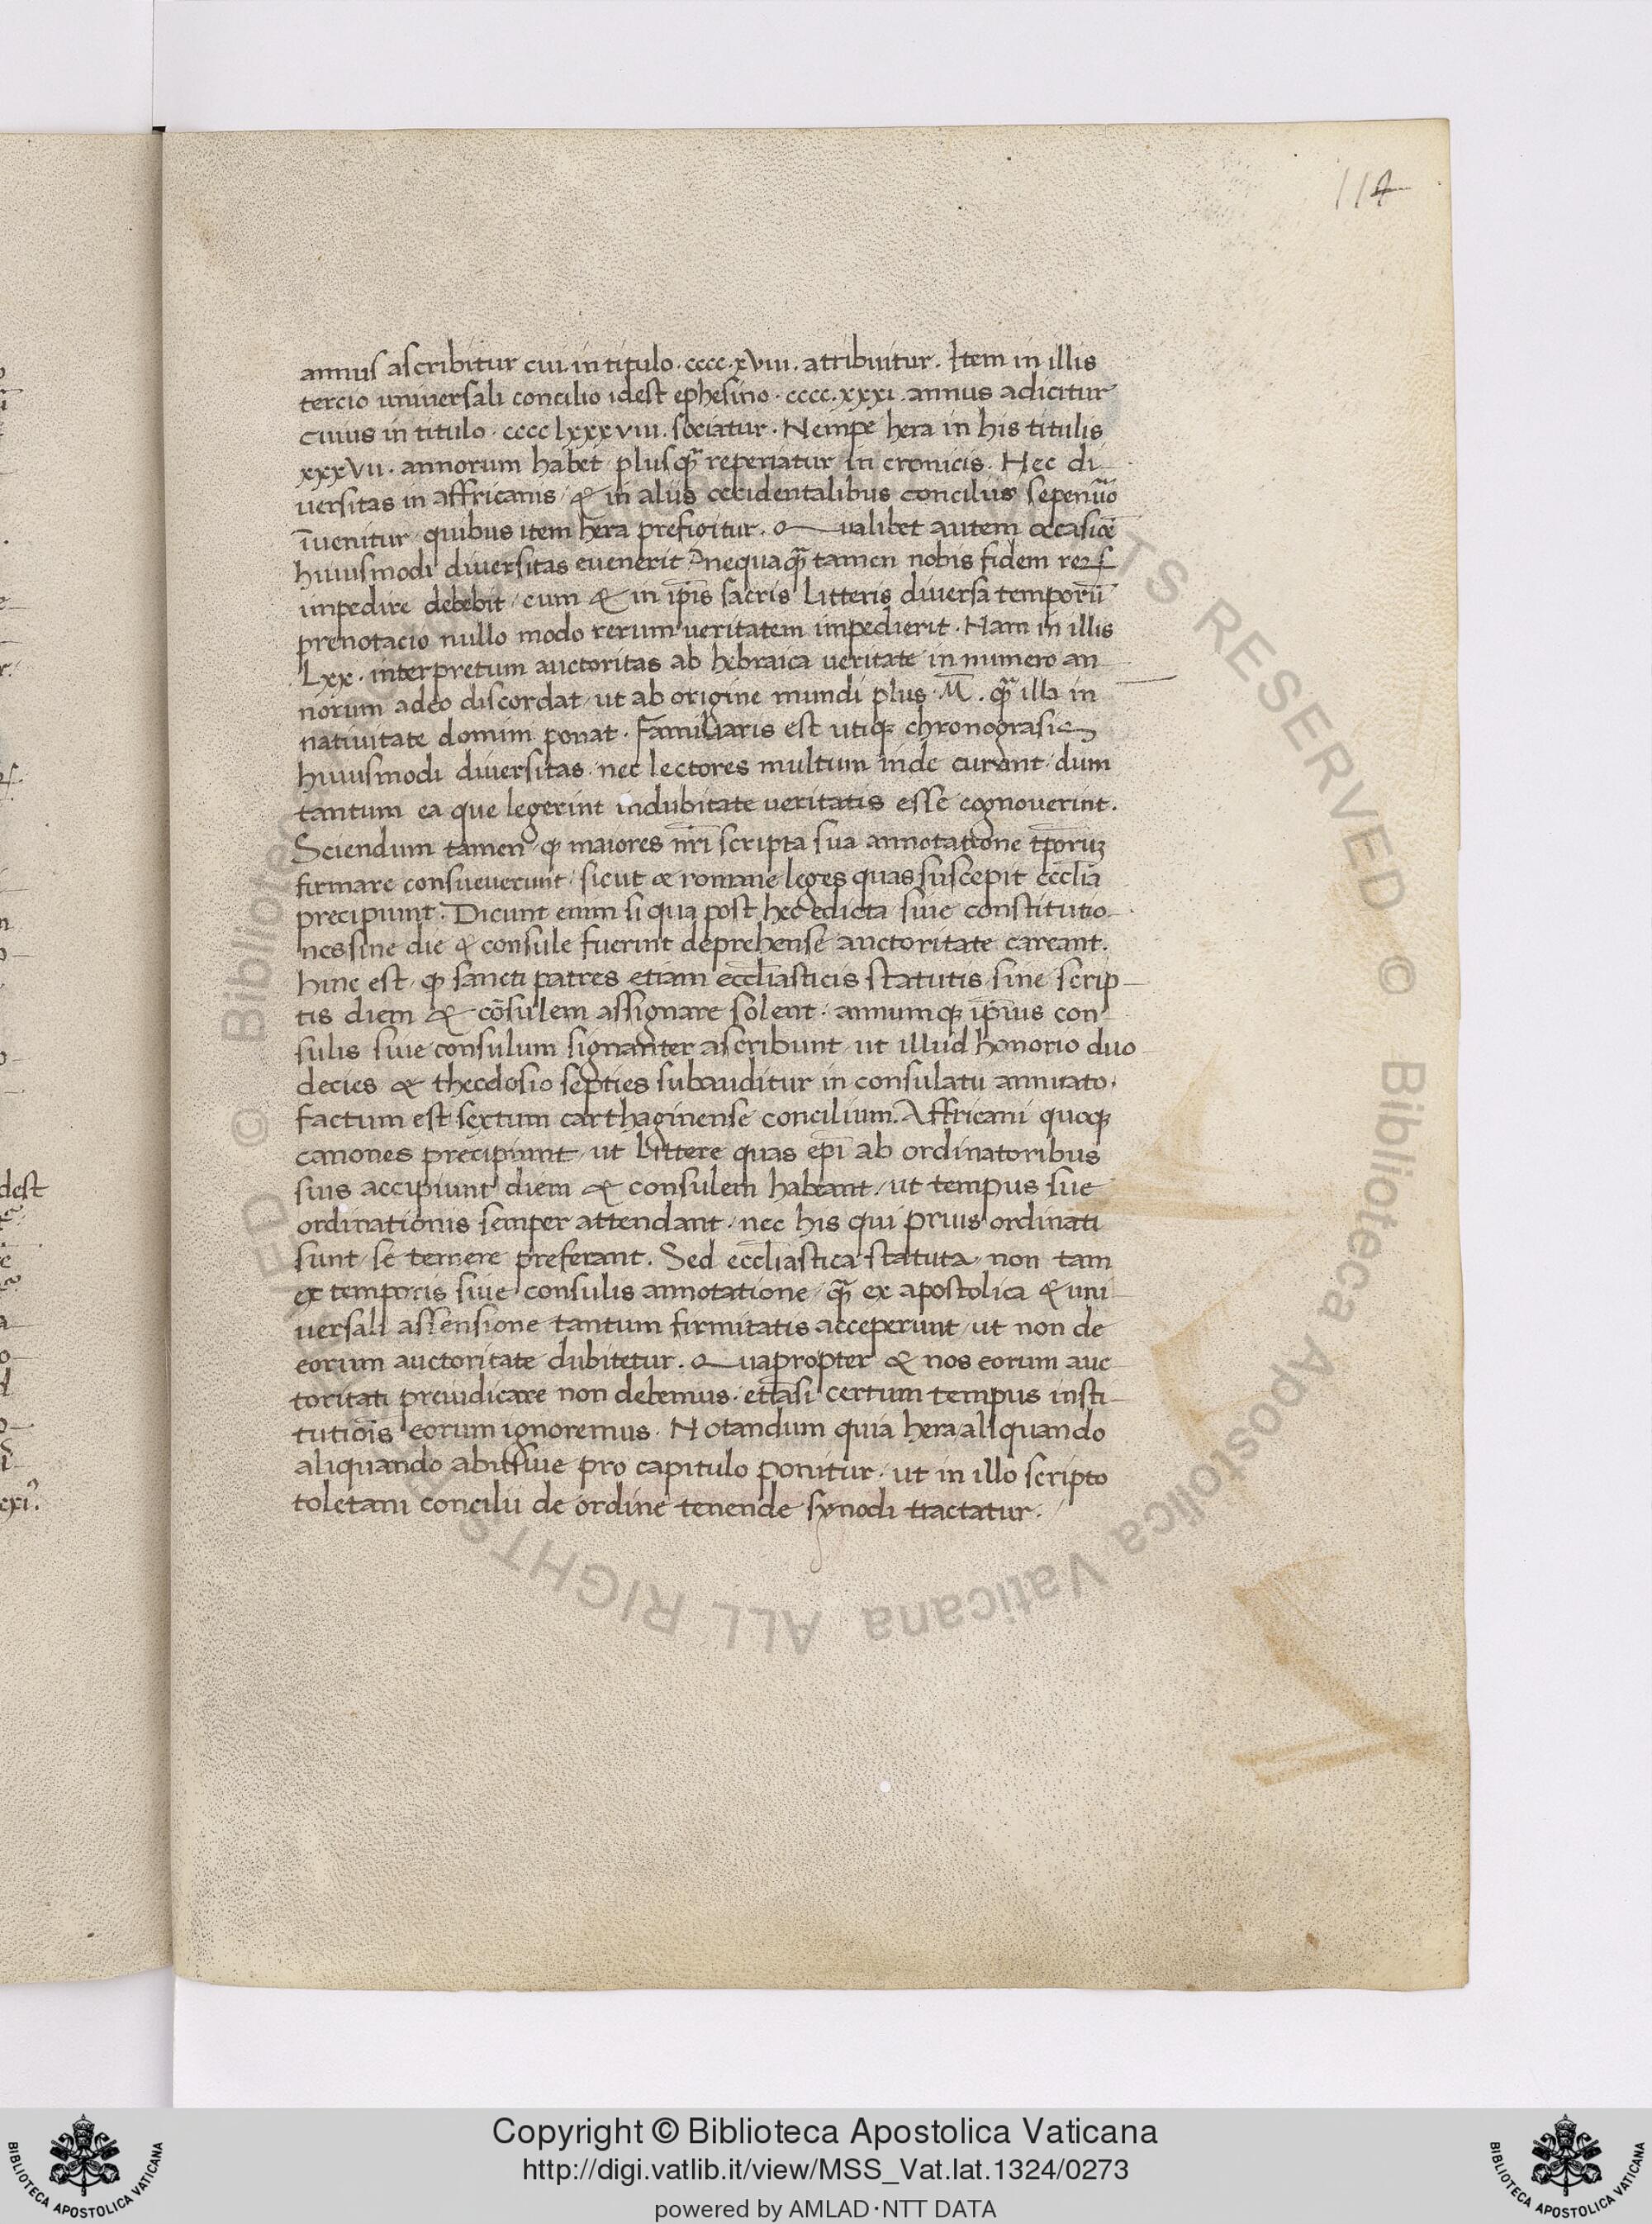 114
annus ascribitur cui in titulo · cccc · xviii · attribuitur. Item in illis
tercio universali concilio idest ephesino · cccc · xxxi · annus adicitur
cuius in titulo · cccc lxxxviii · sociatur · Nempe hera in his titulis
xxxvii · annorum habet plusq̃ reperiatur in cronicis. Hec di
uersitas in affricanis & in aliis occidentalibus conciliis sepenũo
ĩuenitur quibus item hera prefigitur. Qualibet autem occasiõe
huiusmodi diuersitas euenerit nequaq̃ tamen nobis fidem reꝝ
impedire debebit cum & in ip̃is sacris litteris diuersa temporũ
prenotacio nullo modo rerum ueritatem impedierit · Nam in illis
Lxx · interpretum auctoritas ab hebraica ueritate in numero an
norum adeo discordat ut ab origine mundi plus · M̃ · q̃ illa in
natiuitate domini ponat · Familiaris est utiqꝫ chronografis
huiusmodi diuersitas nec lectores multum inde curant dum
tantum ea que legerint indubitate ueritatis esse cognouerint.
Sciendum tamen ꝙ maiores nr̃i scripta sua annotatione tp̃oruꝫ
firmare consueuerunt sicut & romane leges quas suscepit eccl̃ia
precipiunt. Dicunt enim si qua post hec edicta siue constitutio
nes sine die & consule fuerint deprehense auctoritate careant.
hinc est ꝙ sancti patres etiam eccl̃iasticis statutis siue scrip
tis diem & cõsulem assignare solent · annumqꝫ ip̃ius con
sulis siue consulum signanter ascribunt ut illud honorio duo
decies & theodosio septies subauditur in consulatu annitato.
factum est sextum carthaginense concilium. Affricani quoqꝫ
canones precipiunt ut littere quas ep̃i ab ordinatoribus
suis accipiunt diem & consulem habeant ut tempus sue
ordinationis semper attendant nec his qui prius ordinati
sunt se temere preferant. Sed eccl̃iastica statuta non tam
ex temporis siue consulis annotatione q̃ ex apostolica & uni
uersali assensione tantum firmitatis acceperunt ut non de
eorum auctoritate dubitetur. Quapropter & nos eorum auc
toritati preiudicare non debemus · etiãsi certum tempus insti
tutiõis eorum ignoremus · Notandum quia hera aliquando
aliquando abit siue pro capitulo ponitur ut in illo scripto
toletani concilii de ordine tenende synodi tractatur.
Copyright © Biblioteca Apostolica Vaticana
http://digi.vatlib.it/view/MSS_Vat.lat.1324/0273
powered by AMLAD·NTT DATA